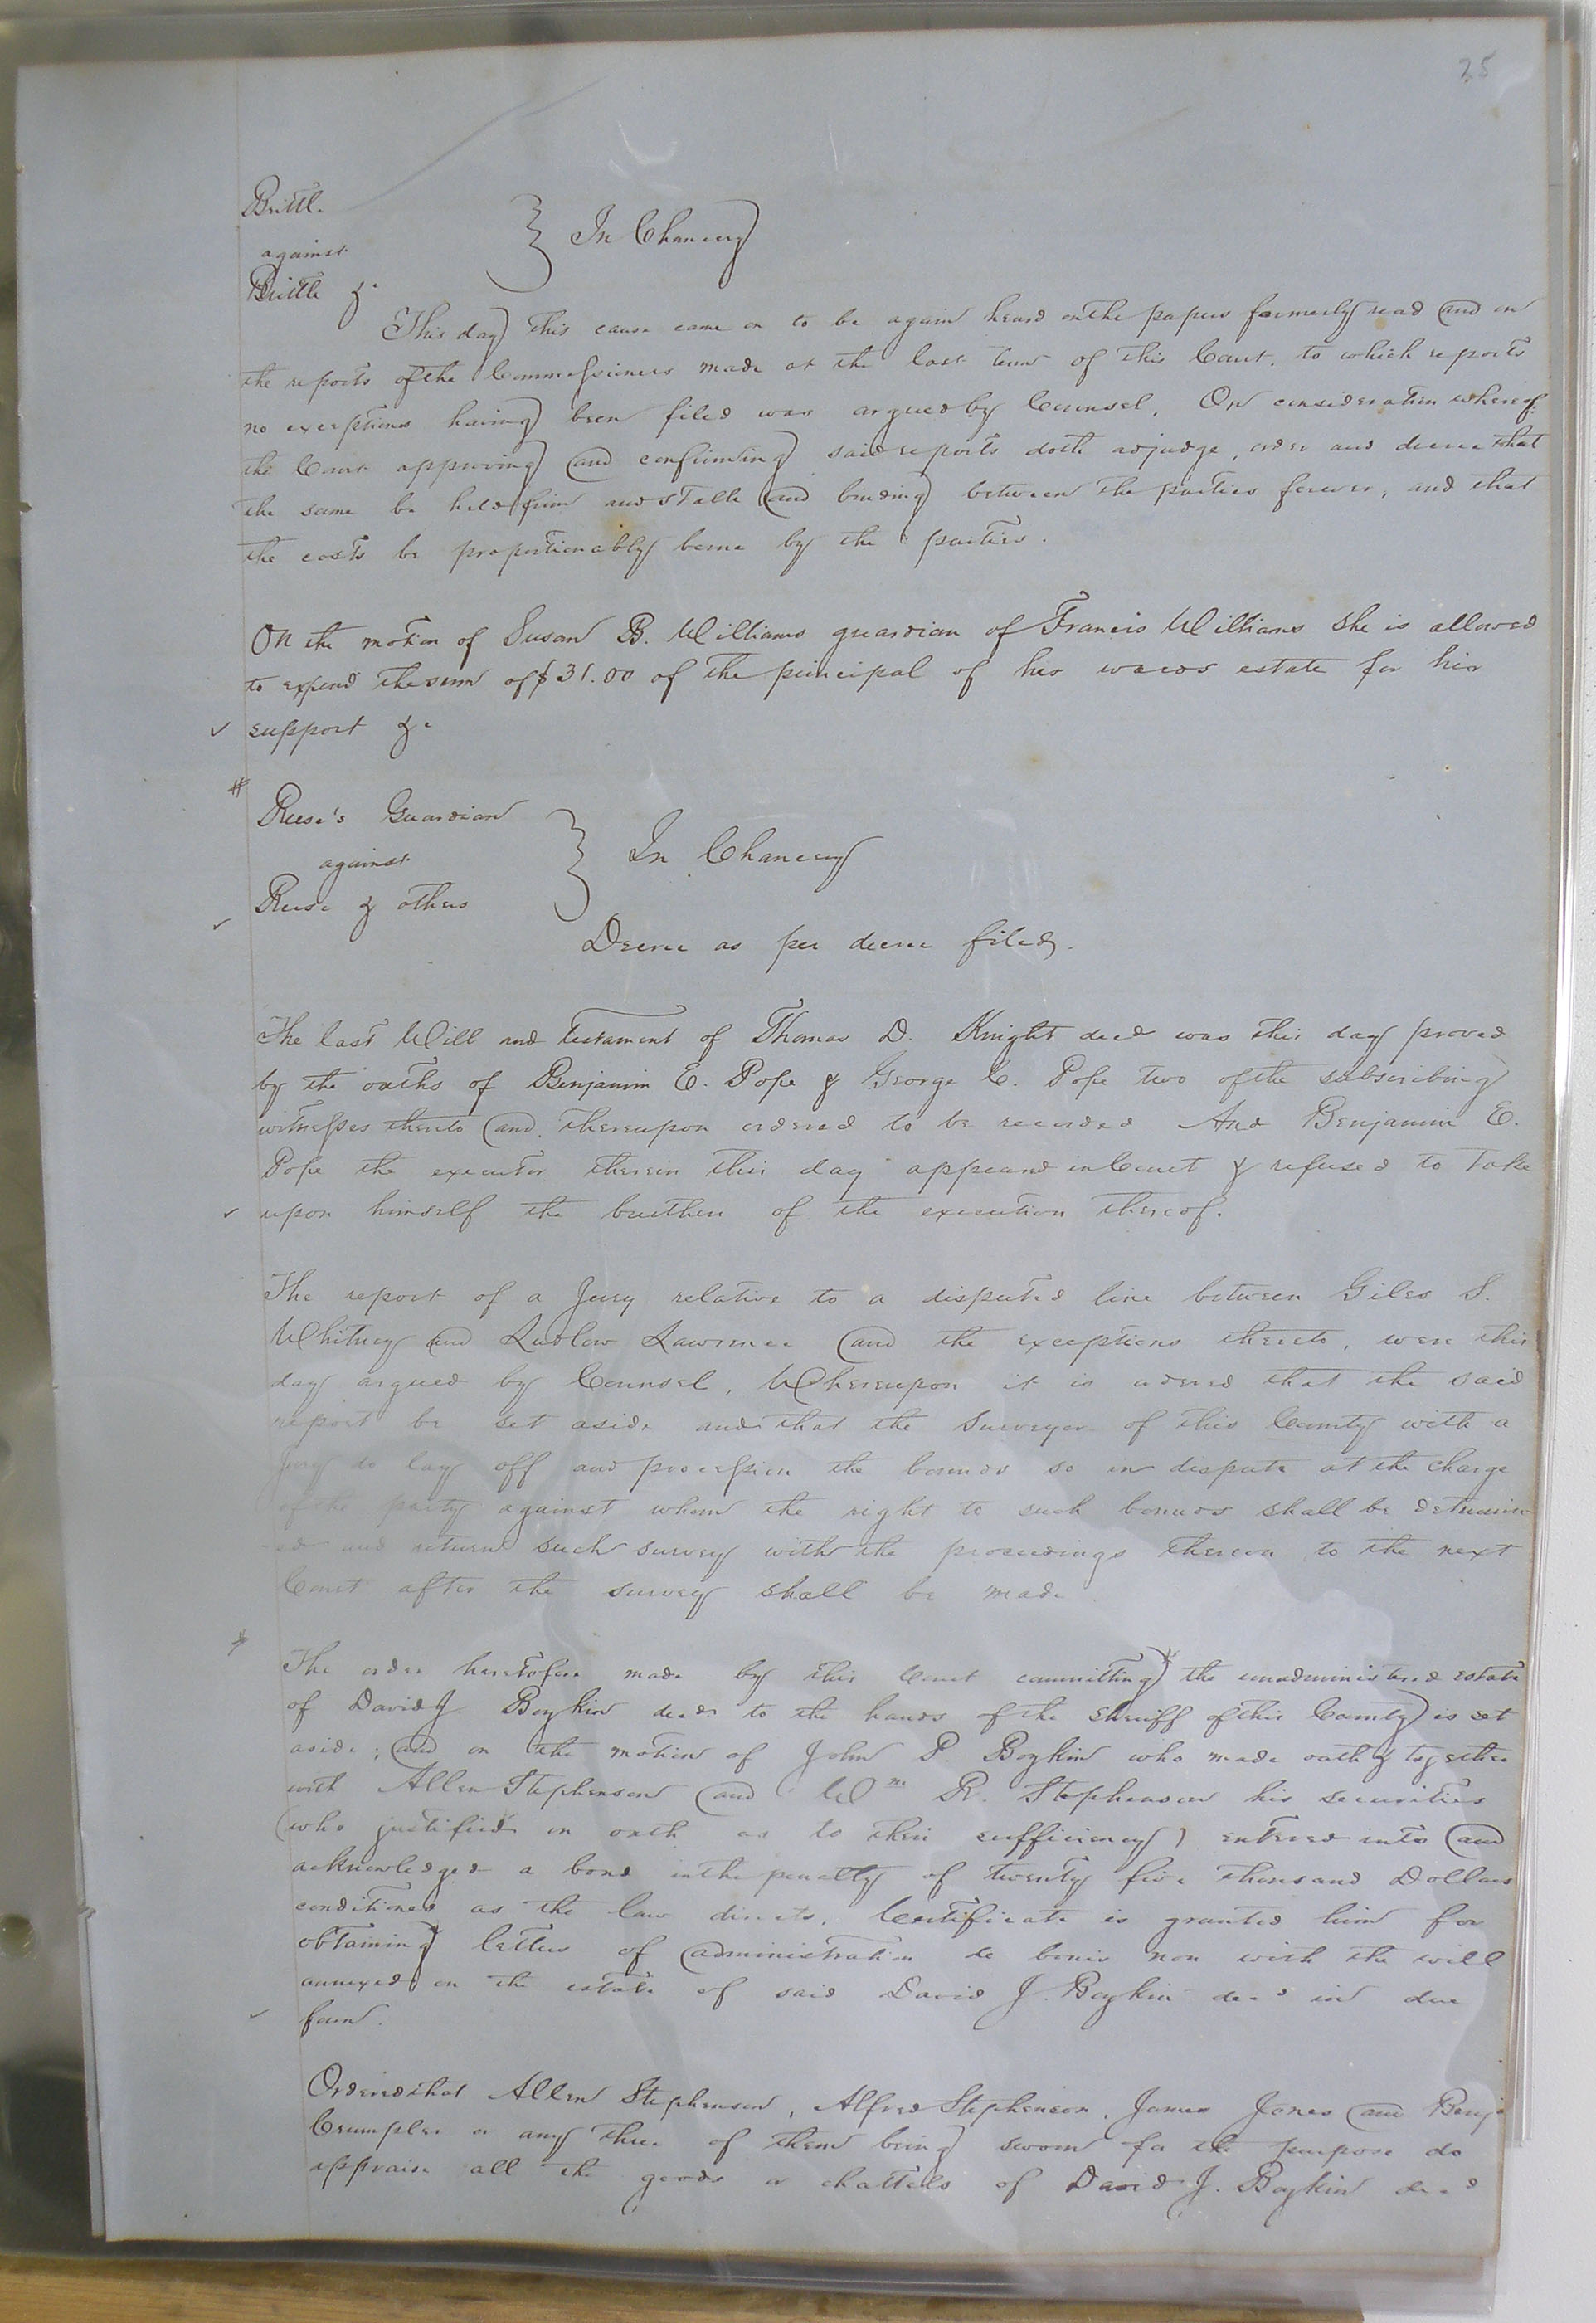 25
Brittle
against
Brittle &c
In Chancery
This day this cause came on to be again heard on the papers formerly read and on
the reports of the Commissioners made at the last term of this Court, to which reports
no exceptions having been filed was argued by Counsel, On consideration whereof
the Court approving and confirming said reports doth adjudge, order and decree that
the same be held firm and stable and binding between the parties forever, and that
the costs be proportionably borne by the parties.
On the motion of Susan B. Williams guardian of Francis Williams she is allowed
to expend the sum of $31.00 of the principal of her wards estate for his
✓ support &c
#
Reese's Guardian
against
Reese & others
In Chancery
✓
Decree as per decree filed.
The last Will and testament of Thomas D. Knight decd was this day proved
by the oaths of Benjamin E. Pope & George C. Pope two of the subscribing
witnesses thereto and thereupon ordered to be recorded And Benjamin E.
Pope the executor therein this day appeared in Court & refused to take
✓ upon himself the burthen of the execution thereof.
The report of a Jury relative to a disputed line between Giles S.
Whitney and Ludlow Lawrence and the exceptions thereto, were this
day argued by Counsel, Whereupon it is ordered that the said
report be set aside and that the Surveyor of this County with a
jury do lay off and procession the bounds so in dispute at the charge
of the party against whom the right to such bounds shall be determin
-ed and return such survey with the proceedings thereon to the next
Court after the survey shall be made.
The order heretofore made by this Court committing the unadministered estate
of David J. Boykin decd to the hands of the Sheriff of this County is set
aside; and on the motion of John P. Boykin who made oath & together
with Allen Stephenson and Wm R. Stephenson his securities
(who justified on oath as to their sufficiency) entered into and
acknowledged a bond in the penalty of twenty five thousand Dollars
conditioned as the law directs, Certificate is granted him for
obtaining letters of administration de bonis non with the will
annexed on the estate of said David J. Boykin decd in due
✓ form.
Ordered that Allen Stephenson, Alfred Stephenson, James Jones and Benj
Crumpler or any three of them being sworn for the purpose do
appraise all the goods or chattels of David J. Boykin decd